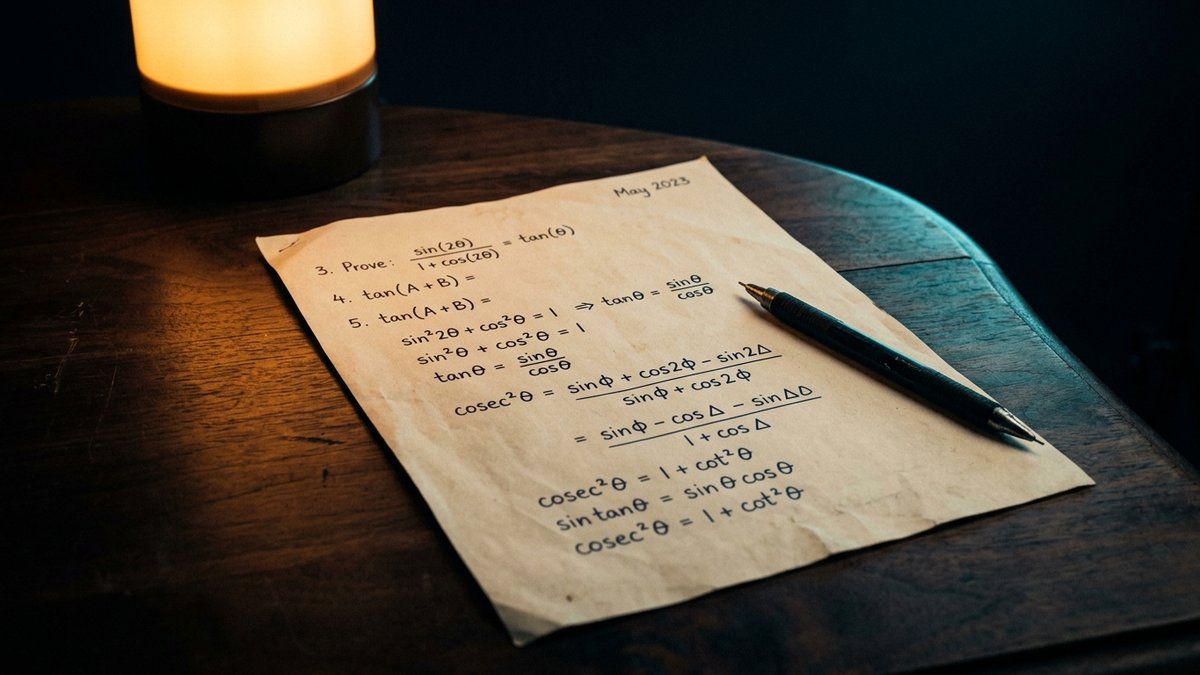 May 2023
3. Prove: sin(2θ) / 1 + cos(2θ) = tan(θ)
4. tan(A + B) =
5. tan(A + B) =
sin²2θ + cos²θ = 1 ⇒ tanθ = sinθ / cosθ
sin²θ + cos²θ = 1
tanθ = sinθ / cosθ
cosec²θ = sinϕ + cos2ϕ − sin2Δ / sinϕ + cos2ϕ
= sinϕ − cos Δ − sin ΔΔ / 1 + cos Δ
cosec²θ = 1 + cot²θ
sin tanθ = sin θ cosθ
cosec²θ = 1 + cot²θ